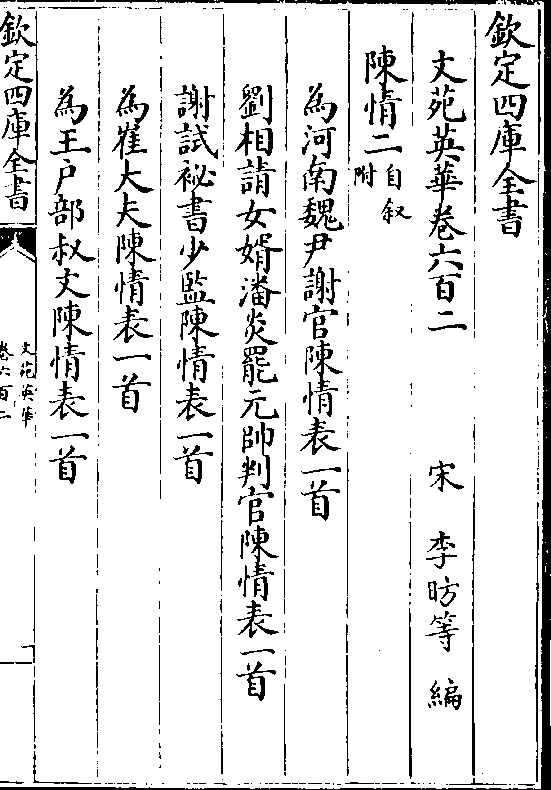 欽定四庫全書
文苑英華卷六百二
宋 李昉等 編
陳情二 自叙附
為河南魏尹謝官陳情表一首
劉相請女婿潘炎罷元帥判官陳情表一首
謝試祕書少監陳情表一首
為崔大夫陳情表一首
為王户部叔文陳情表一首
欽定四庫全書
文苑英華
卷六百二
一